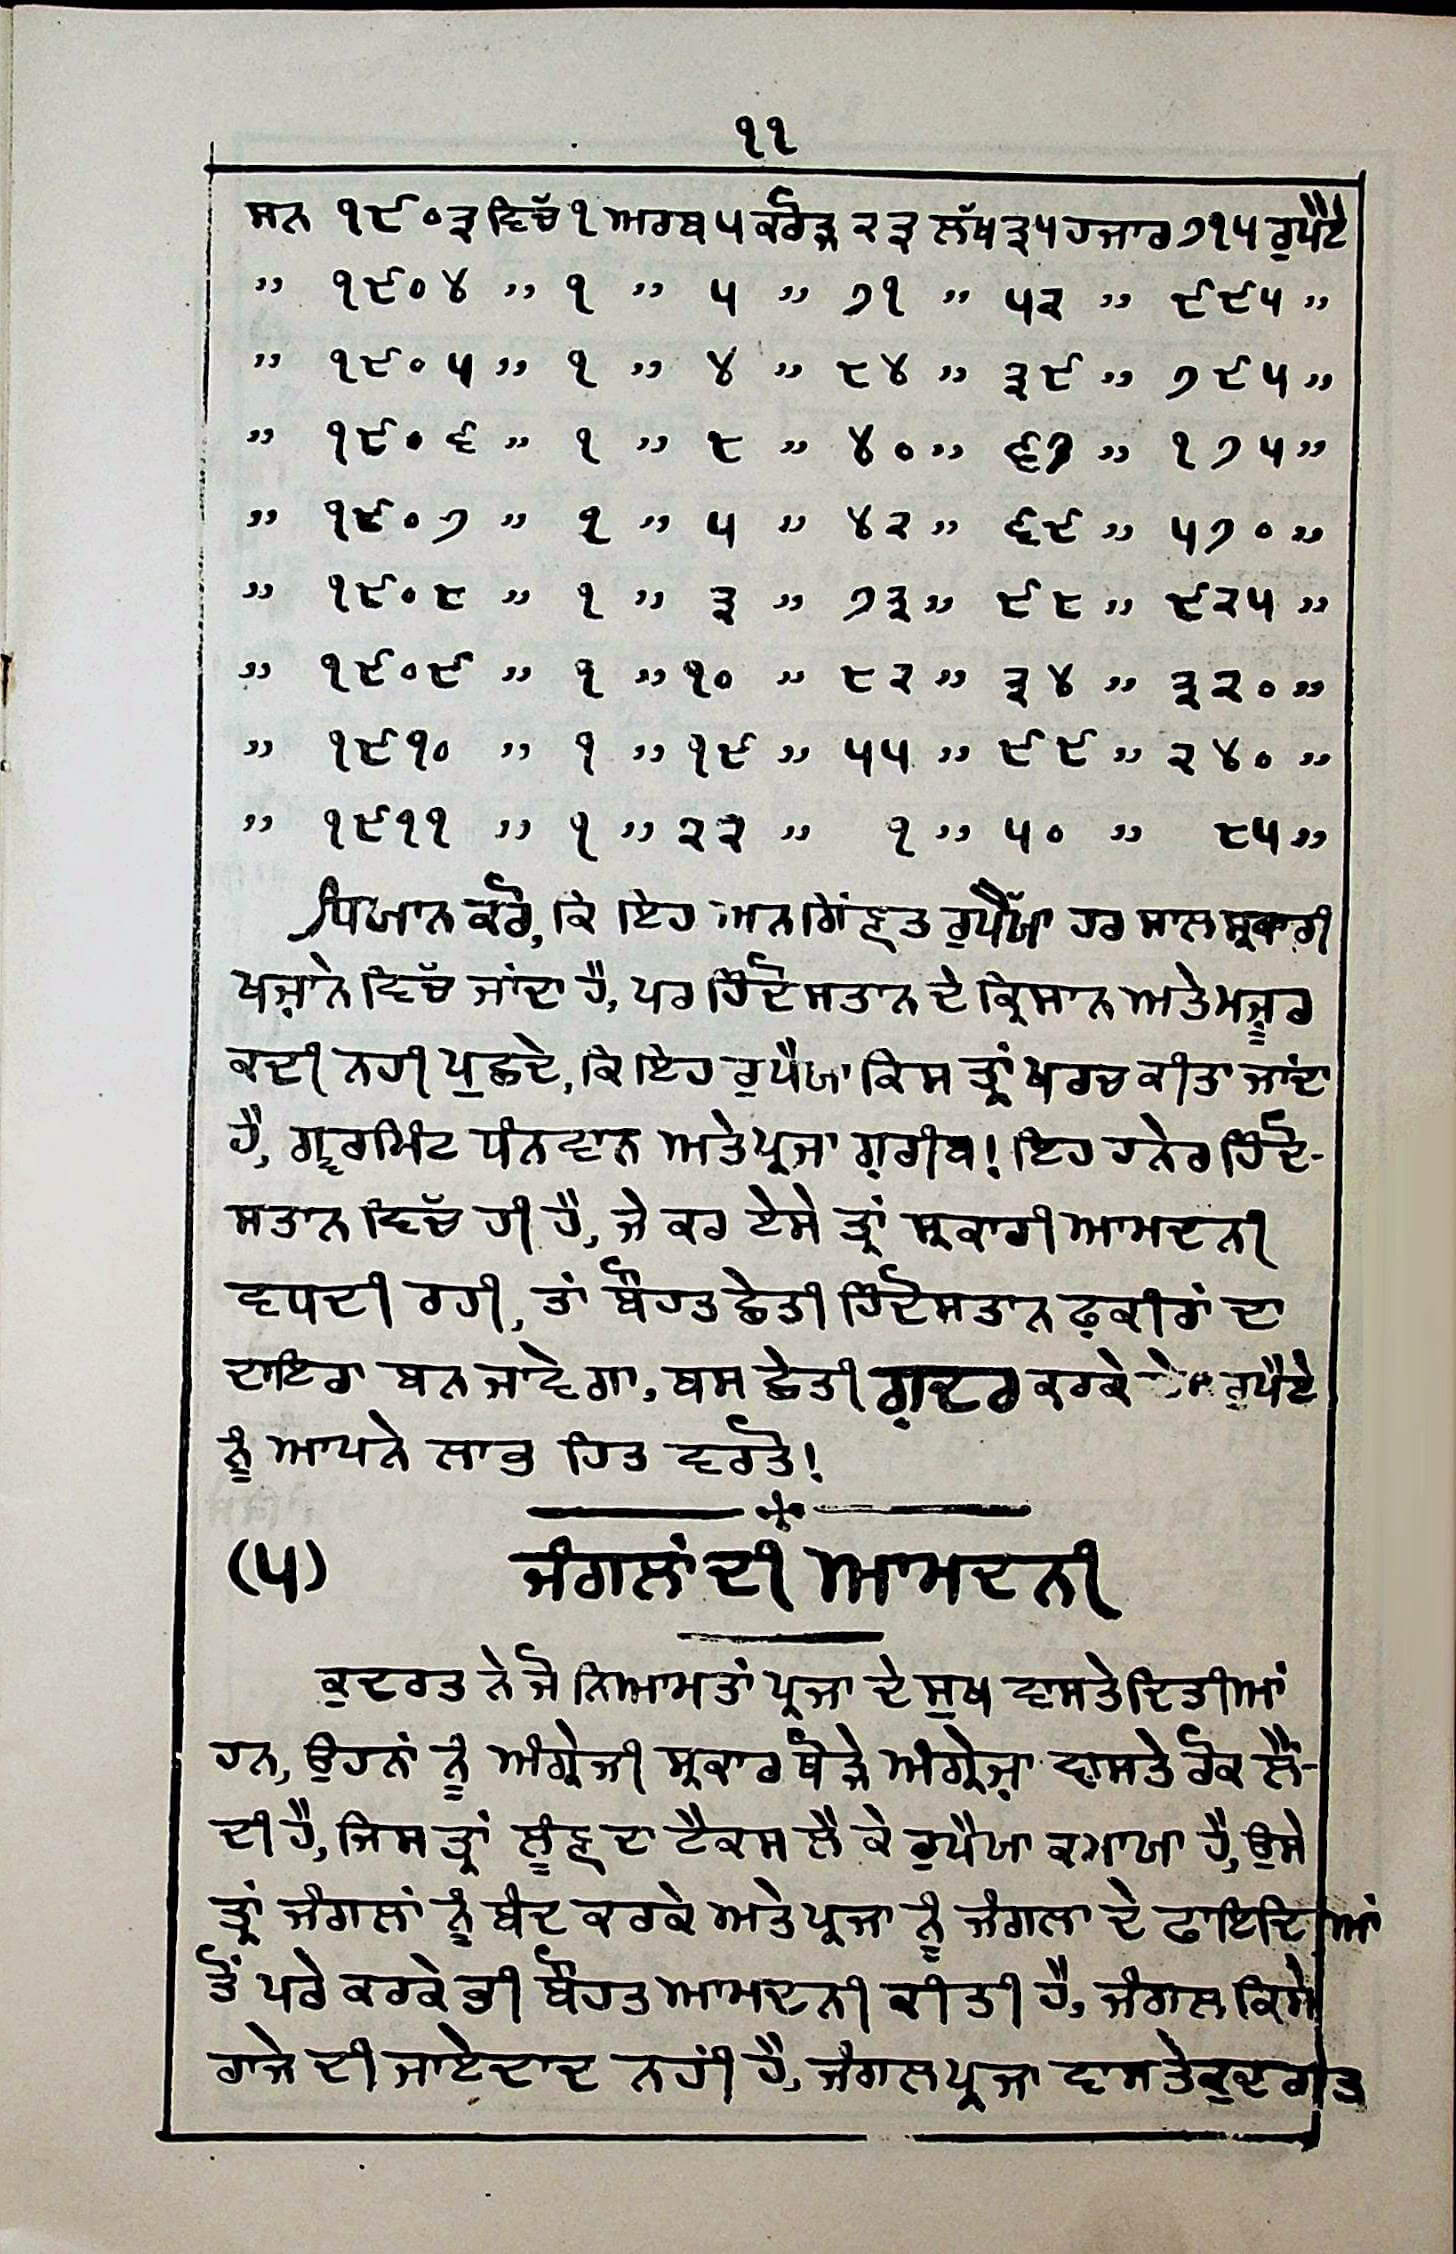 ੧੧
ਸਨ ੧੯੦੩ ਵਿੱਚ ੧ ਅਰਬ ੫ ਕਰੋੜ ੨੩ ਲੱਖ ੩੫ ਹਜਾਰ ੭੧੫ ਰੁਪੈਏ
” ੧੯੦੪ ” ੧ ” ੫ ” ੭੧ ” ੫੨ ” ੯੯੫ ”
” ੧੯੦੫ ” ੧ ” ੪ ” ੮੪ ” ੩੯ ” ੭੯੫ ”
” ੧੯੦੬ ” ੧ ” ੮ ” ੪੦ ” ੬੭ ” ੧੭੫ ”
” ੧੯੦੭ ” ੧ ” ੫ ” ੪੨ ” ੬੯ ” ੫੭੦ ”
” ੧੯੦੮ ” ੧ ” ੩ ” ੭੩ ” ੯੮ ” ੯੨੫ ”
” ੧੯੦੯ ” ੧ ” ੧੦ ” ੮੨ ” ੩੪ ” ੩੨੦ ”
” ੧੯੧੦ ” ੧ ” ੧੯ ” ੫੫ ” ੯੯ ” ੨੪੦ ”
” ੧੯੧੧ ” ੧ ” ੨੨ ” ੧ ” ੫੦ ” ੮੫ ”
ਧਿਯਾਨ ਕਰੋ, ਕਿ ਇਹ ਅਨਗਿਣਤ ਰੁਪੈੱਯਾ ਹਰ ਸਾਲ ਸ੍ਰਕਾਰੀ
ਖਜ਼ਾਨੇ ਵਿੱਚ ਜਾਂਦਾ ਹੈ, ਪਰ ਹਿੰਦੋਸਤਾਨ ਦੇ ਕ੍ਰਿਸਾਨ ਅਤੇ ਮਜ਼ੂਰ
ਕਦੀ ਨਹੀ ਪੁਛਦੇ, ਕਿ ਇਹ ਰੁਪੈਯਾ ਕਿਸ ਤ੍ਰਾਂ ਖਰਚ ਕੀਤਾ ਜਾਂਦਾ
ਹੈ, ਗ੍ਵਰਮਿੰਟ ਧੰਨਵਾਨ ਅਤੇ ਪ੍ਰਜਾ ਗ਼ਰੀਬ! ਇਹ ਹਨੇਰ ਹਿੰਦੋ-
ਸਤਾਨ ਵਿੱਚ ਹੀ ਹੈ, ਜੇ ਕਰ ਏਸੇ ਤ੍ਰਾਂ ਸ੍ਰਕਾਰੀ ਆਮਦਨੀ
ਵਧਦੀ ਰਹੀ, ਤਾਂ ਬੌਹਤ ਛੇਤੀ ਹਿੰਦੋਸਤਾਨ ਫ਼ਕੀਰਾਂ ਦਾ
ਦਾਇਰਾ ਬਨ ਜਾਵੇਗਾ, ਬਸ ਛੇਤੀ ਗ਼ਦਰ ਕਰਕੇ ਰੁਪੈਏ
ਨੂੰ ਆਪਨੇ ਲਾਭ ਹਿਤ ਵਰਤੋ!
(੫) ਜੰਗਲਾਂ ਦੀ ਆਮਦਨੀ
ਕੁਦਰਤ ਨੇ ਜੋ ਨਿਆਮਤਾਂ ਪ੍ਰਜਾ ਦੇ ਸੁਖ ਵਾਸਤੇ ਦਿਤੀਆਂ
ਹਨ, ਉਹਨਾਂ ਨੂੰ ਅੰਗ੍ਰੇਜੀ ਸ੍ਰਕਾਰ ਥੋੜੇ ਅੰਗ੍ਰੇਜ਼ਾਂ ਵਾਸਤੇ ਰੋਕ ਲੈਂ-
ਦੀ ਹੈ, ਜਿਸ ਤ੍ਰਾਂ ਲੂੰਣ ਦਾ ਟੈਕਸ ਲੈ ਕੇ ਰੁਪੈਯਾ ਕਮਾਯਾ ਹੈ, ਉਸੇ
ਤ੍ਰਾਂ ਜੰਗਲਾਂ ਨੂੰ ਬੰਦ ਕਰਕੇ ਅਤੇ ਪ੍ਰਜਾ ਨੂੰ ਜੰਗਲਾ ਦੇ ਫਾਇਦਿਆਂ
ਤੋਂ ਪਰੇ ਕਰਕੇ ਭੀ ਬੌਹਤ ਆਮਦਨੀ ਕੀਤੀ ਹੈ, ਜੰਗਲ ਕਿਸੇ
ਰਾਜੇ ਦੀ ਜਾਏਦਾਦ ਨਹੀਂ ਹੈ, ਜੰਗਲ ਪ੍ਰਜਾ ਵਾਸਤੇ ਕੁਦਰਤ